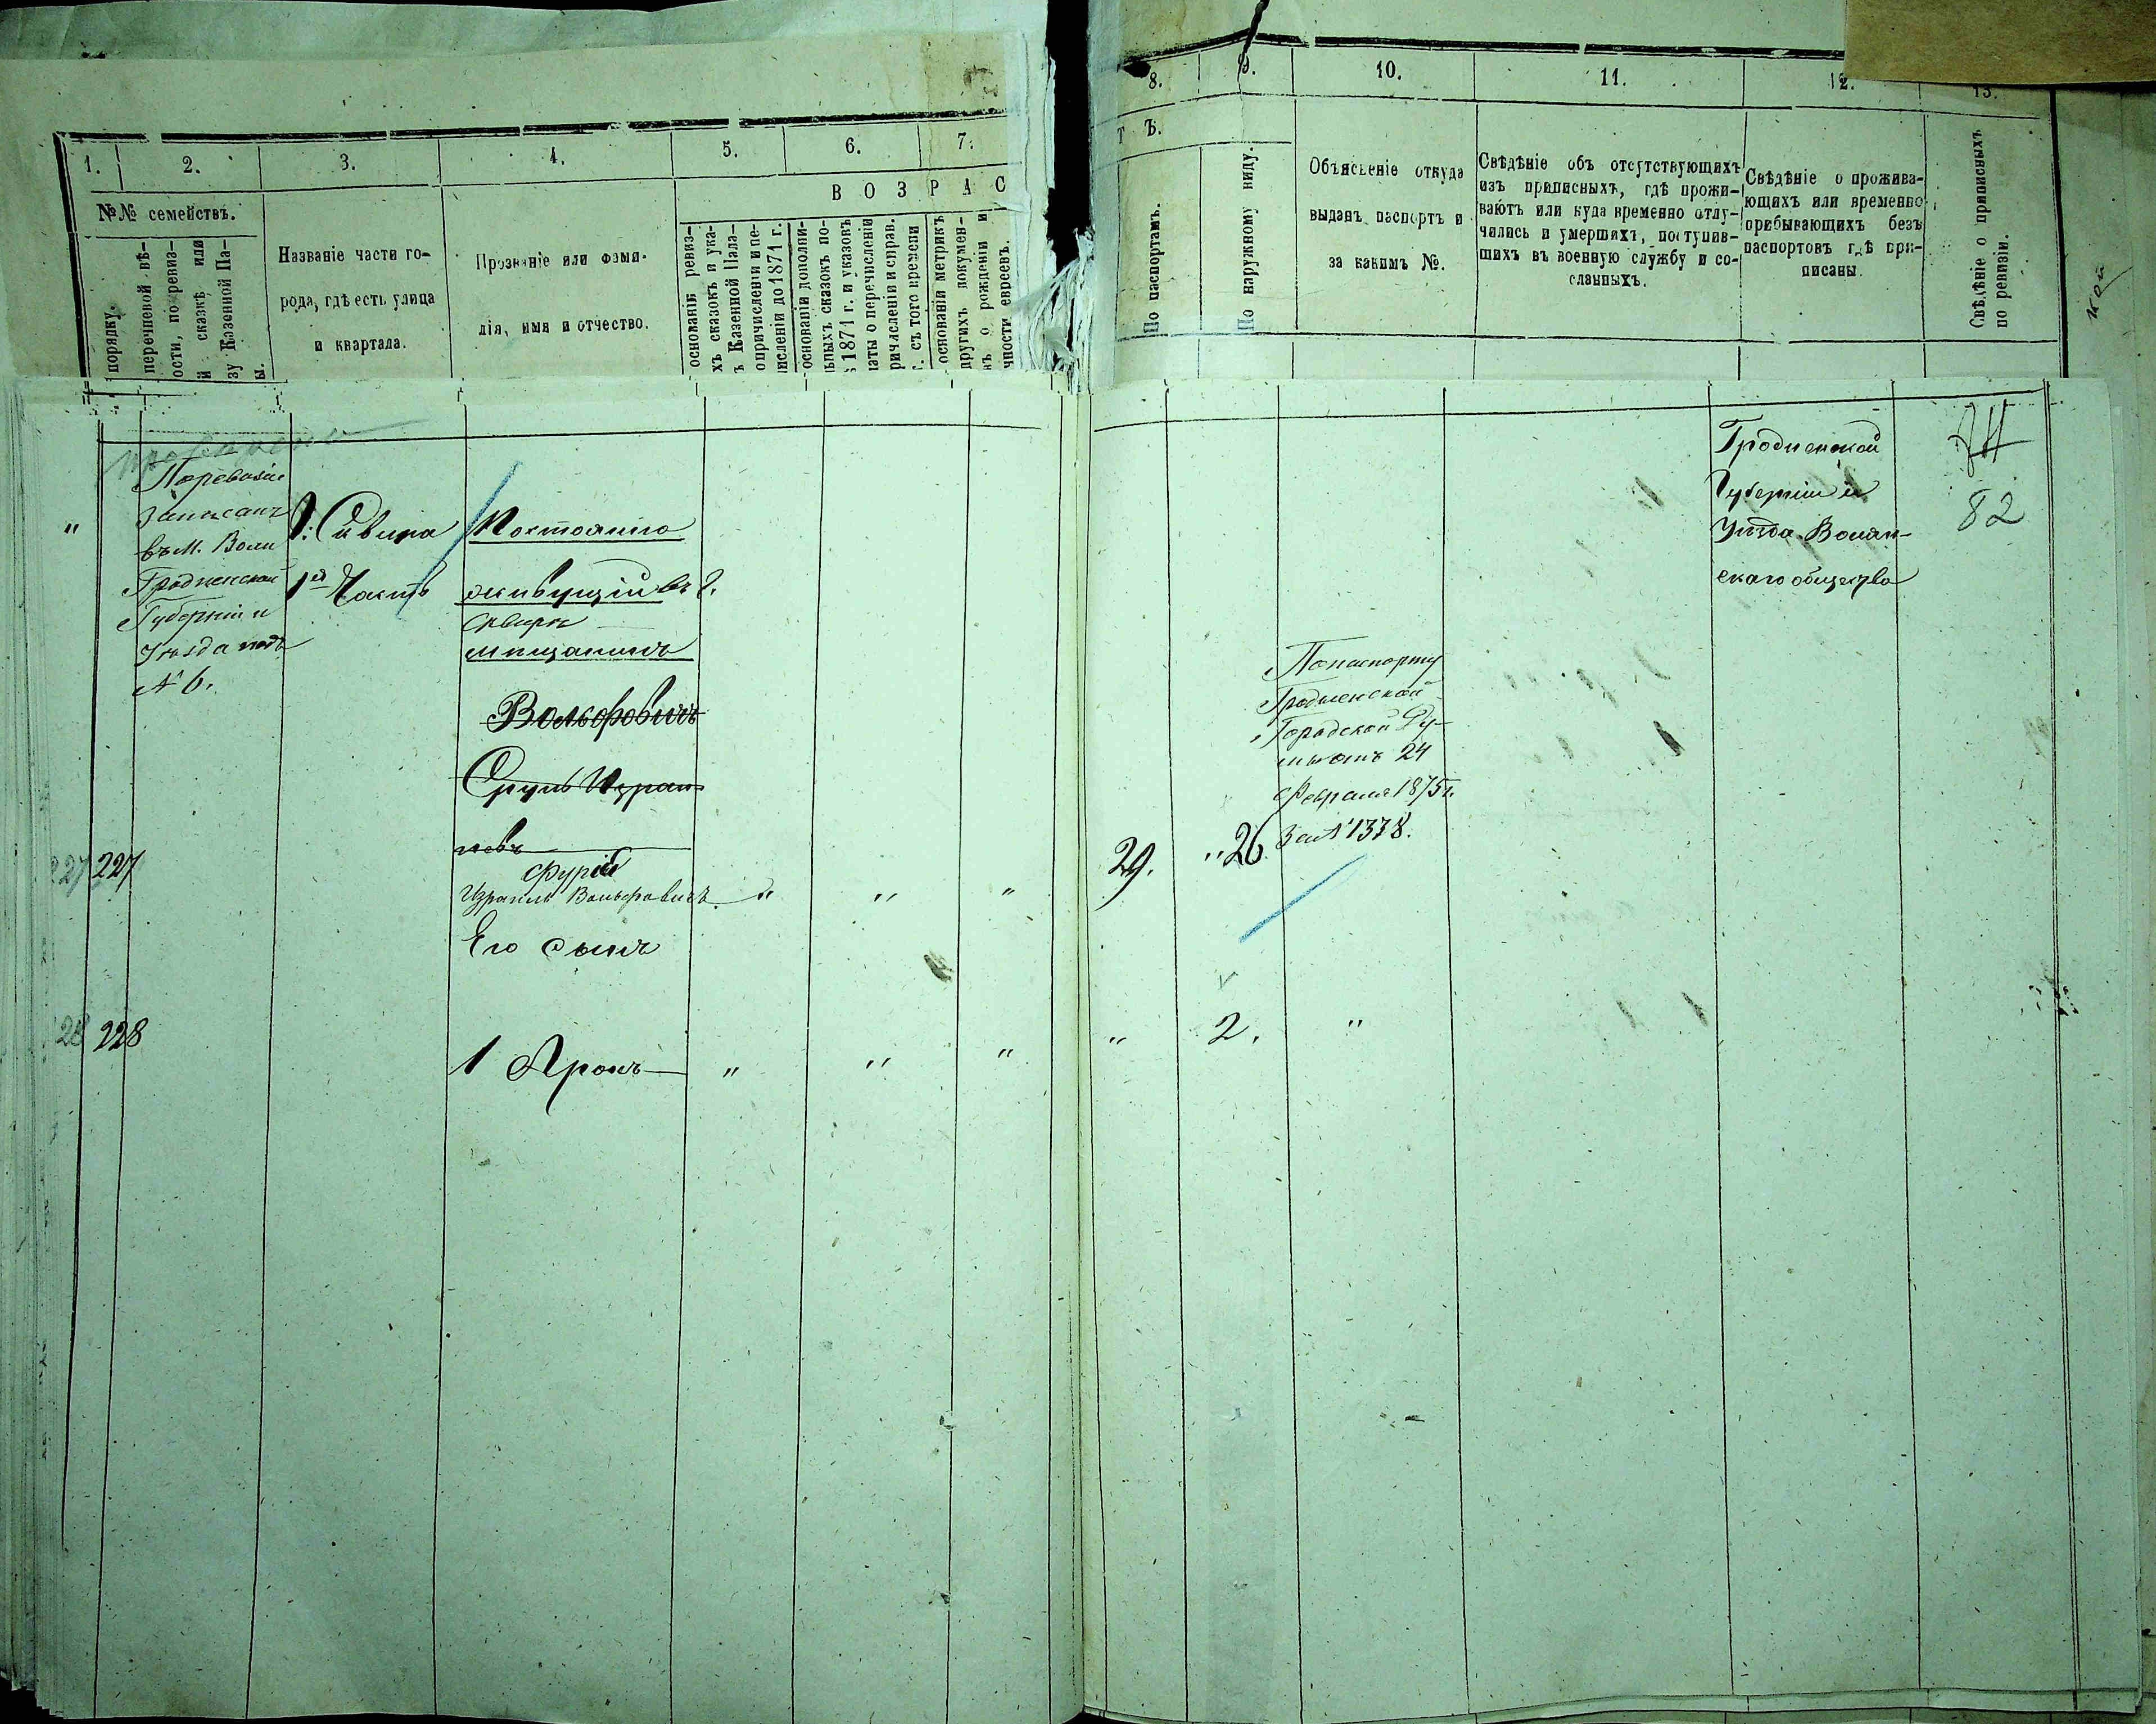 1.
2.
3.
4.
5.
6.
7.
8.
9.
10.
11.
12.
13.
ВОЗРАС
Т Ъ.
№№ семействъ.
порядку.
перечневой вѣ-
ости, по ревиз-
й сказкѣ или
зу Казенной Па-
ы.
Названіе части го-
рода, гдѣ есть улица
и квартала.
Прозваніе или фами-
лія, имя и отчество.
основаніи ревиз-
хъ сказокъ и ука-
ъ Казенной Пала-
о причисленіи и пе-
исленіи до 1871 г.
основаніи дополни-
ьныхъ сказокъ по-
ъ 1871 г. и указовъ
латы о перечисленіи
ричисленіи и справ.
г. съ того времени
основаніи метрикъ
другихъ докумен-
въ о рожденіи и
чности евреевъ.
По паспортамъ.
По наружному виду.
Объясненіе откуда
выданъ паспортъ и
за какимъ №.
Свѣдѣніе объ отсутствующихъ
изъ приписныхъ, гдѣ прожи-
ваютъ или куда временно отлу-
чились и умершихъ, поступив-
шихъ въ военную службу и со-
сланныхъ.
Свѣдѣніе о прожива-
ющихъ или временно
прибывающихъ безъ
паспортовъ гдѣ при-
писаны.
Свѣдѣніе о приписныхъ
по ревизіи.
"
По ревизіи
записанъ
въ м. Волп
Гродненской
Губерніи и
Уѣзда подъ
№ 6.
Г. Сквира
1я Часть
Постоянно
живущій въ г.
Сквирѣ
мѣщанинъ
Вольфовичъ
Сруль Изран-
левъ
Фурій
Израиль Вольфовичъ
Его сынъ
1 Аронъ
227 227
228 228
" " "
" " "
29.
" 26.
" 2. "
По паспорту
Гродненской
Городской Ду-
мы отъ 24
Февраля 1875 г.
За № 1378.
Гродненской
Губерніи и
Уѣзда Волпян-
скаго общества
82